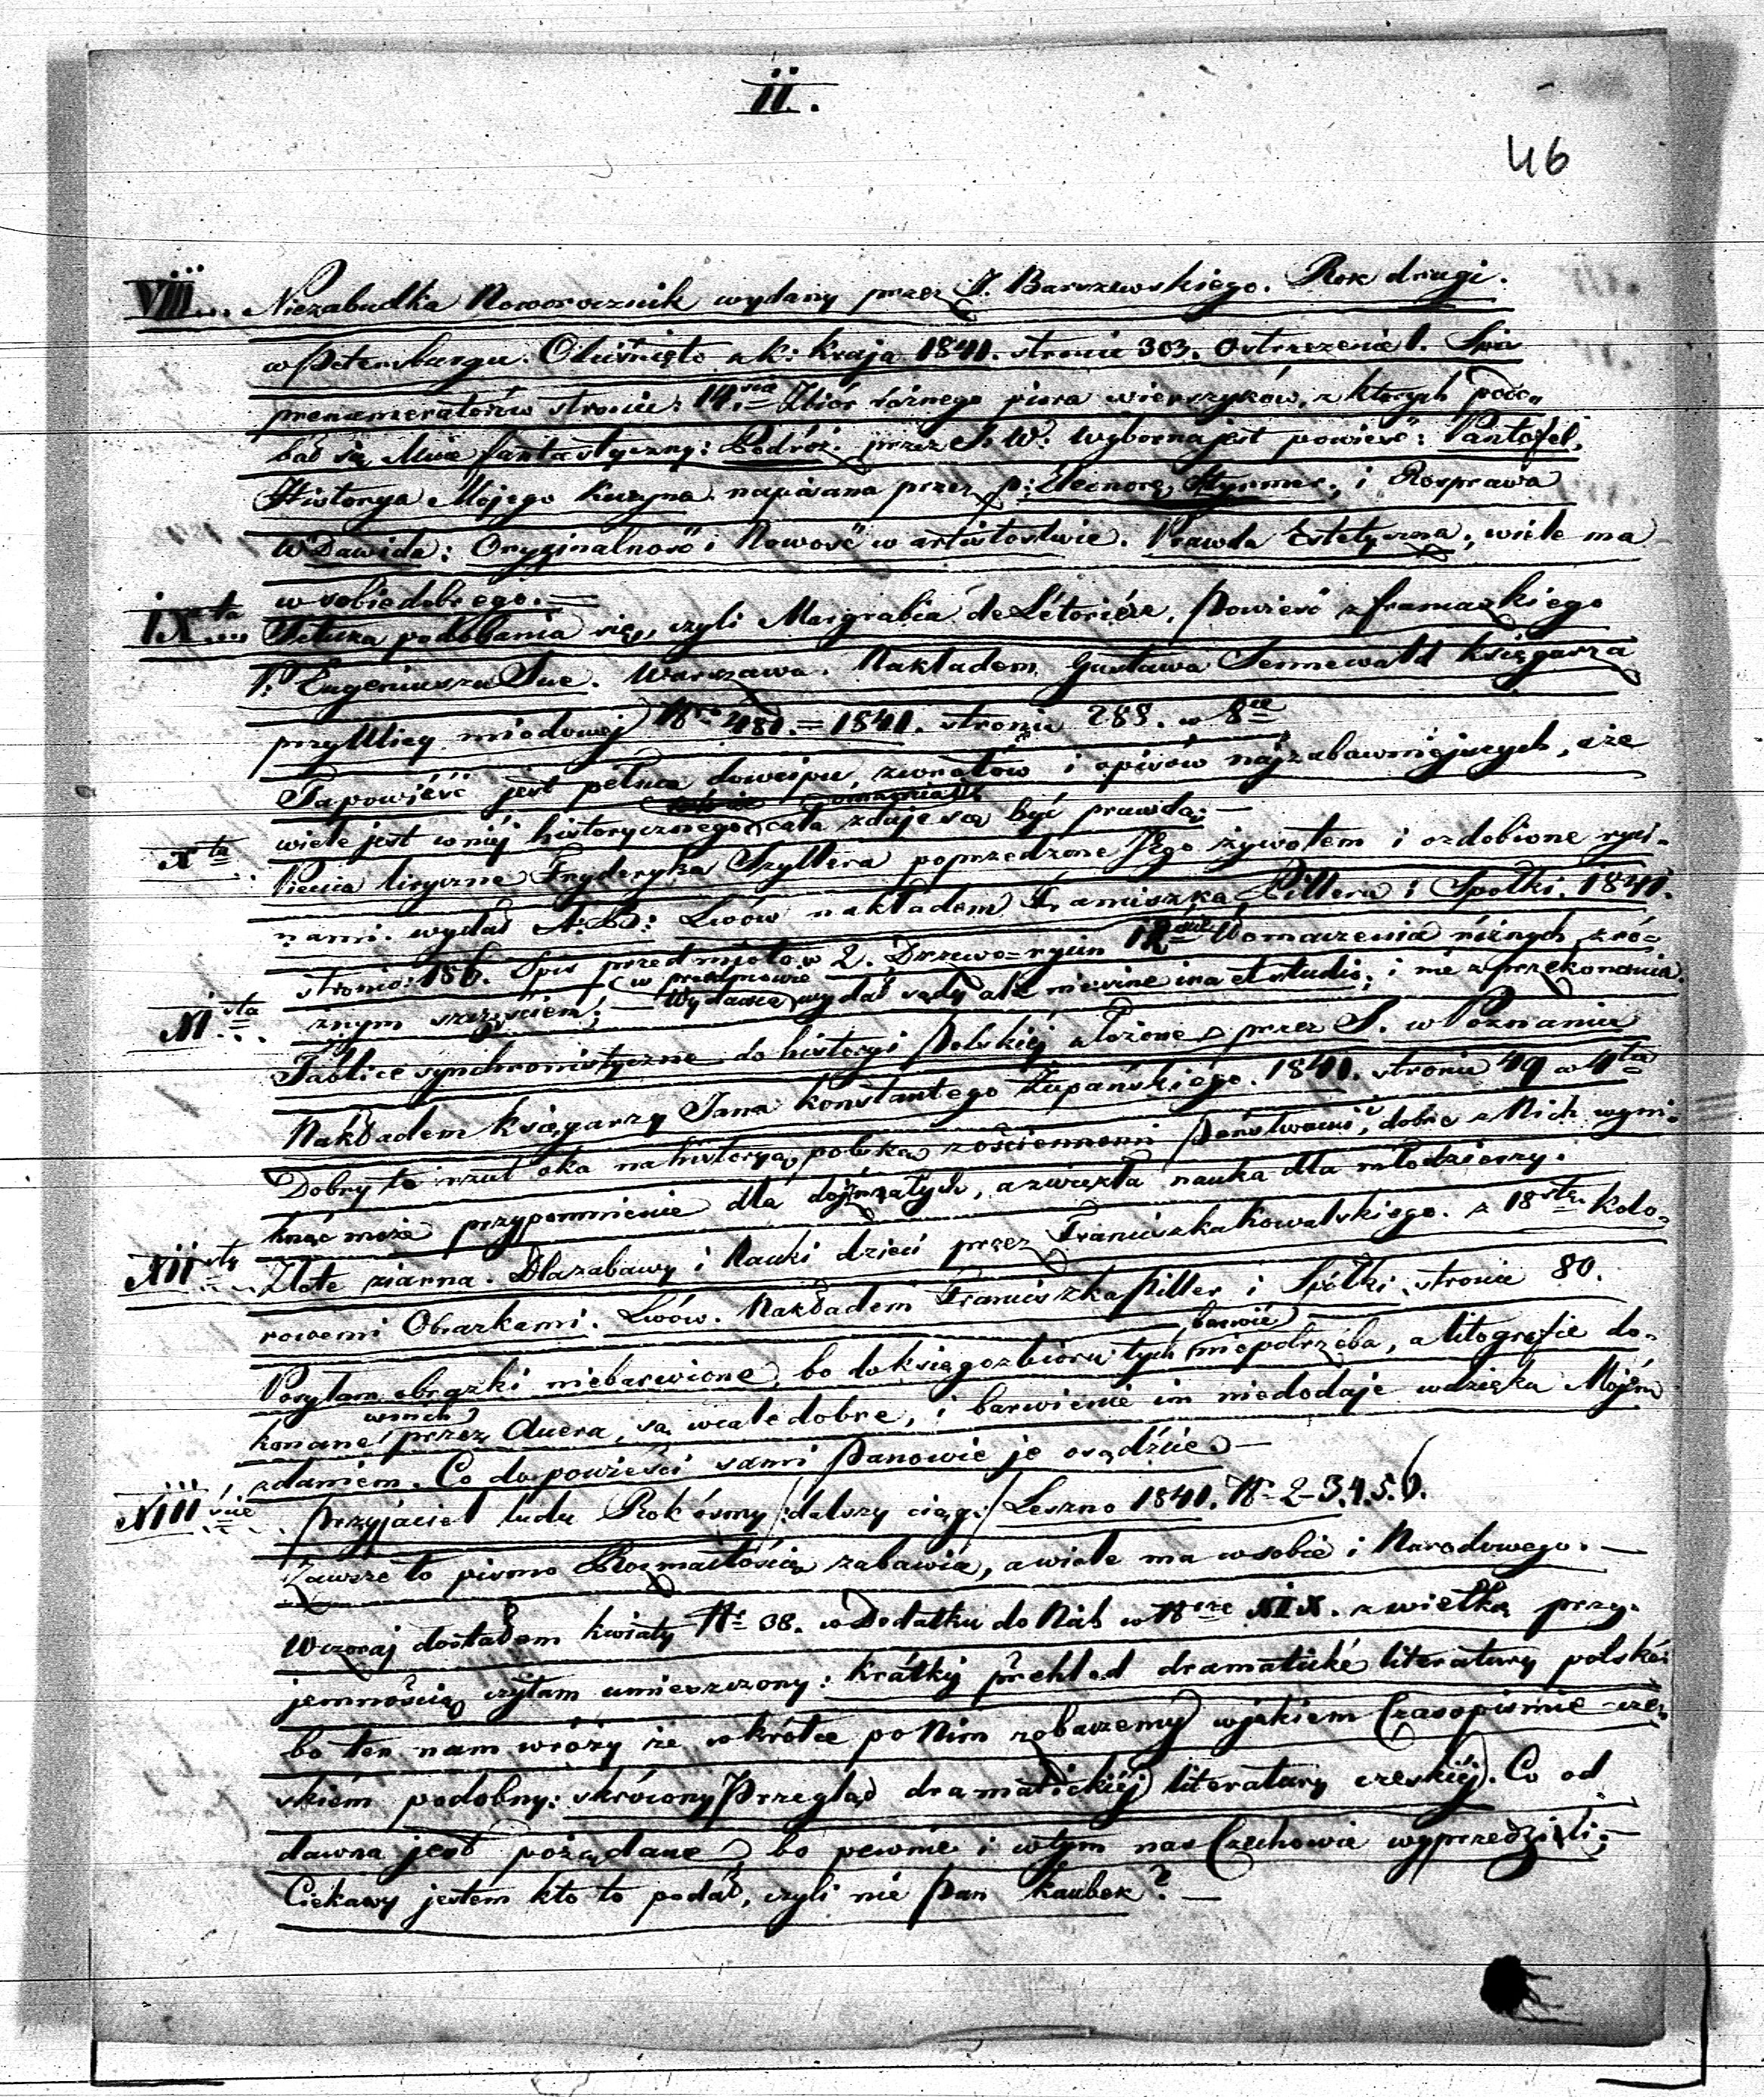 ii.
46
VIII... Niezabudka Noworocznik wydany przez J. Barszewskiego. Rok drugi.
w Petersburgu. Oluśnięto u k: Kraja 1841. stronic 303. Ostrzezenie 1. Spis
prenumeratorów stronic: 14.scie Zbiór różnego piora wierszyków, z których podo„
bał się Mnie fantastyczny: Podróż. przez S. W: wyborna jest powieść: Pantofel.
Historya Mojego Kuzyna. napisana przez p: Eleonorę Sztyrmer.; i Rosprawa
W Dawida: Oryginalność i Nowość w artistostwie. Prawda Estetyczna, wiele ma
w sobie dobrego. =
IXta Sztuka podobania się, czyli Margrabia de Létorière. Powieść z francuzkiego
P: Eugeniusza Sue. Warszawa. Nakładem Gustawa Sennewald księgarza
przy Ulicy miodowej Nro 481. = 1841. stronic 288. w 8ce
Ta powieść jest pełna dowcipu, zwrotów i opisów najzabawniejszych, a że
wiele jest w niej historycznego cała zdaje się być prawdą; —
Xta Pienia liryczne Fryderyka Szyllera poprzedzone Jego żywotem i ozdobione ryci-
nami. wydał A: B: Lwów nakładem Franciszka Pillera i Spółki. 1841.
stronic: 186. Spis przedmiotów 2. Drzewo=rycin 12ście Tłomaczenia różnych, z ró=
w przedmowie
znym szczęściem; — Wydawca wydał sądy ale nie sine ira et studio; i nie z przekonania.
XIsta Tablice synchronistyczne do historyi Polskiej ułożone przez S. w Poznaniu
Nakładem księgarzy Jana Konstantego Żupańskiego. 1841. stronic 49 w 4ta
Dobry to rzut oka na historyą polską z ościennemi Państwami, dobre z Nich wyni-
knąć może przypomnienie dla dojrzałych, a zwięzła nauka dla młodzieży.
XIIsta Złote ziarna. Dla zabawy i Nauki dzieci przez Franciszka Kowalskiego. z 18stą Kolo=
rowemi Obrazkami. Lwów. Nakładem Franciszka Piller i Spółki. stronic 80.
barwić
Posyłam obrazki niebarwione, bo do księgozbioru tych niepotrzeba, a litografie do-
konane przez Auera, są wcale dobre, i barwienie im niedodaje wdzięku Mojém
zdaniem. Co do powieści w nich sami Panowie je osądźcie. —
XIIIście Przyjaciel ludu Rok ósmy /:dalszy ciąg:/ Leszno 1841. No 2-3.4.5.6.
Zawsze to pismo Rozmaitością zabawia, a wiele ma w sobie i Narodowego. —
Wczoraj dostałem kwiaty No 38. w Dodatku do Nich w Nrze XIX. z wielką przy-
jemnością czytam umieszczony: krátký přehled dramatické literatury polské;
bo ten nam wróży że wkrótce po Nim zobaczemy w jakiem Czasopismie cze-
skiém podobny: skrócony Przegląd dramatickiéj literatury czeskiéj. Co od
dawna jest pożądane, bo pewnie i w tym nas Czechowie wyprzedzili; —
Ciekawy jestem kto to podał, czyli nie Pan Kaubek? —